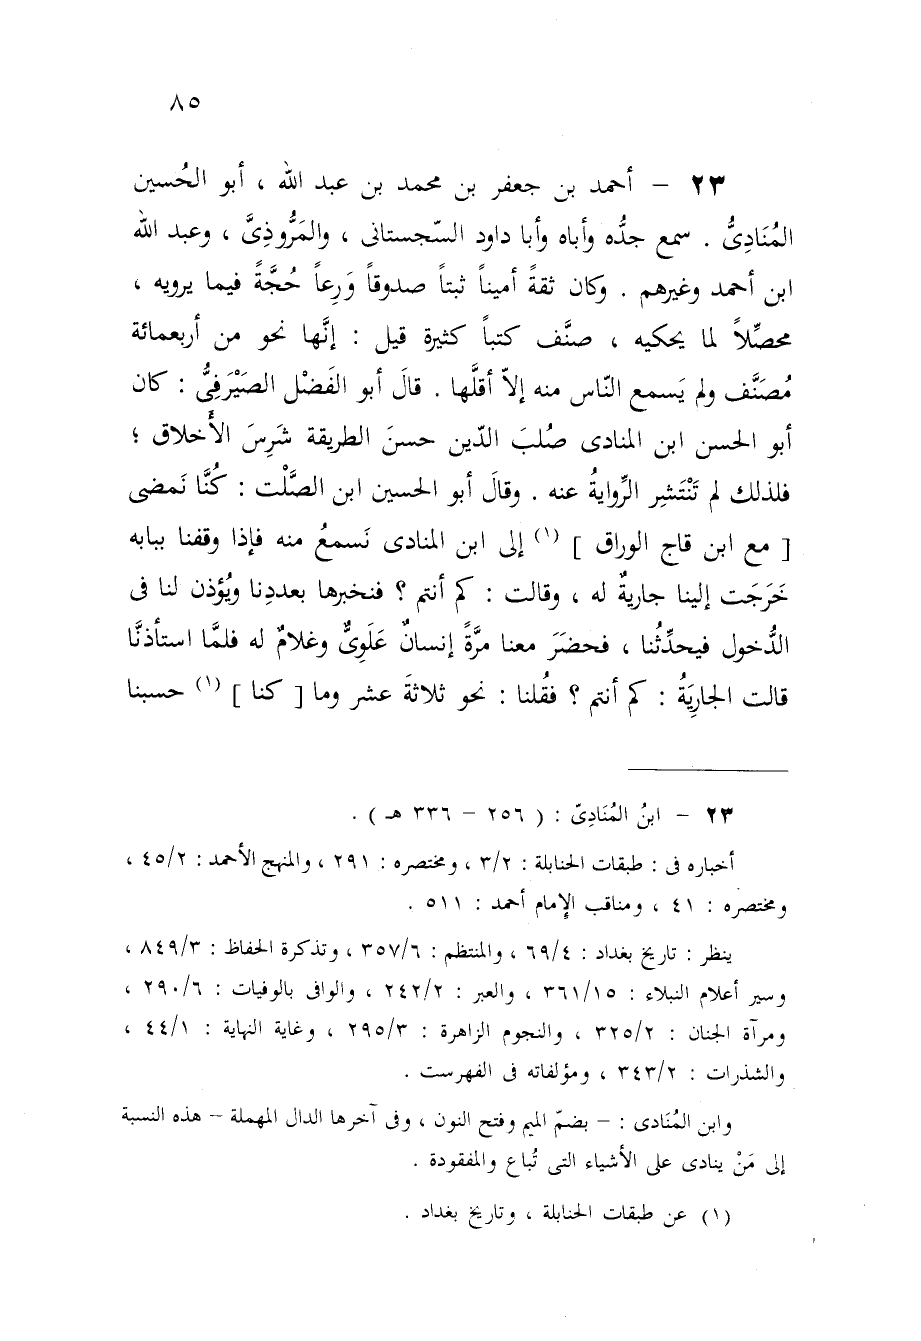 ٨٥
٢٣ - أحمد بن جعفر بن محمد بن عبد الله ، أبو الحُسين
المُنَادِىُّ . سمع جدُّه وأباه وأبا داود السّجستانى ، والمَرُّوذِىَّ ، وعبد الله
ابن أحمد وغيرهم . وكان ثقةً أميناً ثبتاً صدوقاً وَرِعاً حُجَّةً فيما يرويه ،
محصِّلاً لما يحكيه ، صنَّف كتباً كثيرة قيل : إنَّها نحو من أربعمائة
مُصَنَّف ولم يَسمع النّاس منه إلاّ أقلَّها . قالَ أبو الفَضْل الصَيْرَفِىُّ : كان
أبو الحسن ابن المنادى صُلبَ الدّين حسنَ الطريقة شَرِسَ الأَخلاق ؛
فلذلك لم تَنْتَشِر الرِّوايةُ عنه . وقالَ أبو الحسين ابن الصَّلْت : كُنَّا نَمضى
[ مع ابن قاج الوراق ] (١) إلى ابن المنادى نَسمعُ منه فإذا وقفنا ببابه
خَرَجَت إلينا جاريةٌ له ، وقالت : كم أنتم ؟ فنخبرها بعددِنا ويُؤذن لنا فى
الدُّخول فيحدِّثُنا ، فحضَرَ معنا مرَّةً إنسانٌ عَلَوِىٌّ وغلامٌ له فلمَّا استأذنَّا
قالت الجارِيَةُ : كم أنتم ؟ فقُلنا : نحو ثلاثةَ عشر وما [ كنا ] (١) حسبنا
٢٣ - ابنُ المُنَادِىّ : ( ٢٥٦ - ٣٣٦ هـ ) .
أخباره فى : طبقات الحنابلة : ٣/٢ ، ومختصره : ٢٩١ ، والمنهج الأحمد : ٤٥/٢ ،
ومختصره : ٤١ ، ومناقب الإمام أحمد : ٥١١ .
ينظر : تاريخ بغداد : ٦٩/٤ ، والمنتظم : ٣٥٧/٦ ، وتذكرة الحفاظ : ٨٤٩/٣ ،
وسير أعلام النبلاء : ٣٦١/١٥ ، والعبر : ٢٤٢/٢ ، والوافى بالوفيات : ٢٩٠/٦ ،
ومرآة الجنان : ٣٢٥/٢ ، والنجوم الزاهرة : ٢٩٥/٣ ، وغاية النهاية : ٤٤/١ ،
والشذرات : ٣٤٣/٢ ، ومؤلفاته فى الفهرست .
وابن المُنَادى : - بضمّ الميم وفتح النون ، وفى آخرها الدال المهملة - هذه النسبة
إلى مَنْ ينادى على الأشياء التى تُباع والمفقودة .
(١) عن طبقات الحنابلة ، وتاريخ بغداد .